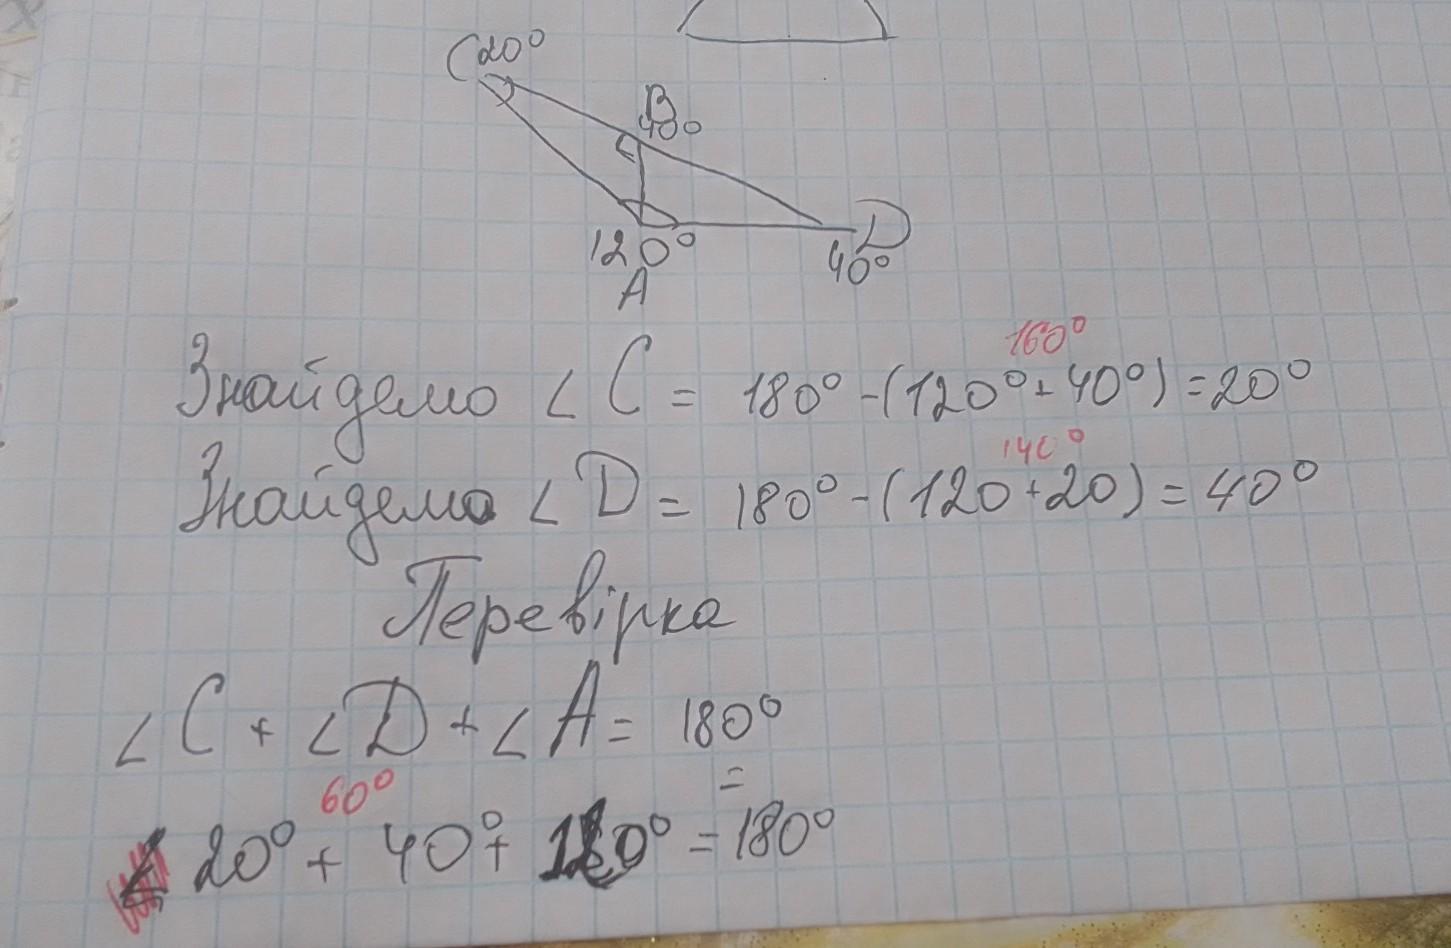 C 20°
B
40°
120°
A
D
40°
160°
Знайдемо ∠ C = 180° - (120° + 40°) = 20°
140°
Знайдемо ∠ D = 180° - (120 + 20) = 40°
Перевірка
∠ C + ∠ D + ∠ A = 180°
60°
=
20° + 40° + 120° = 180°